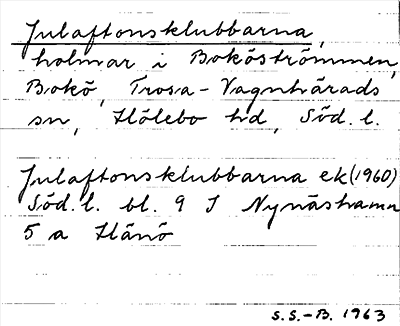 Julaftonsklubbarna,
holmar i Boköströmmen,
Bokö, Trosa-Vagnhärads
sn, Hölebo hd, Söd. l.
Julaftonsklubbarna ek (1960)
Söd. l. bl. 9 J Nynäshamn
5 a Hånö
S.S.-B. 1963